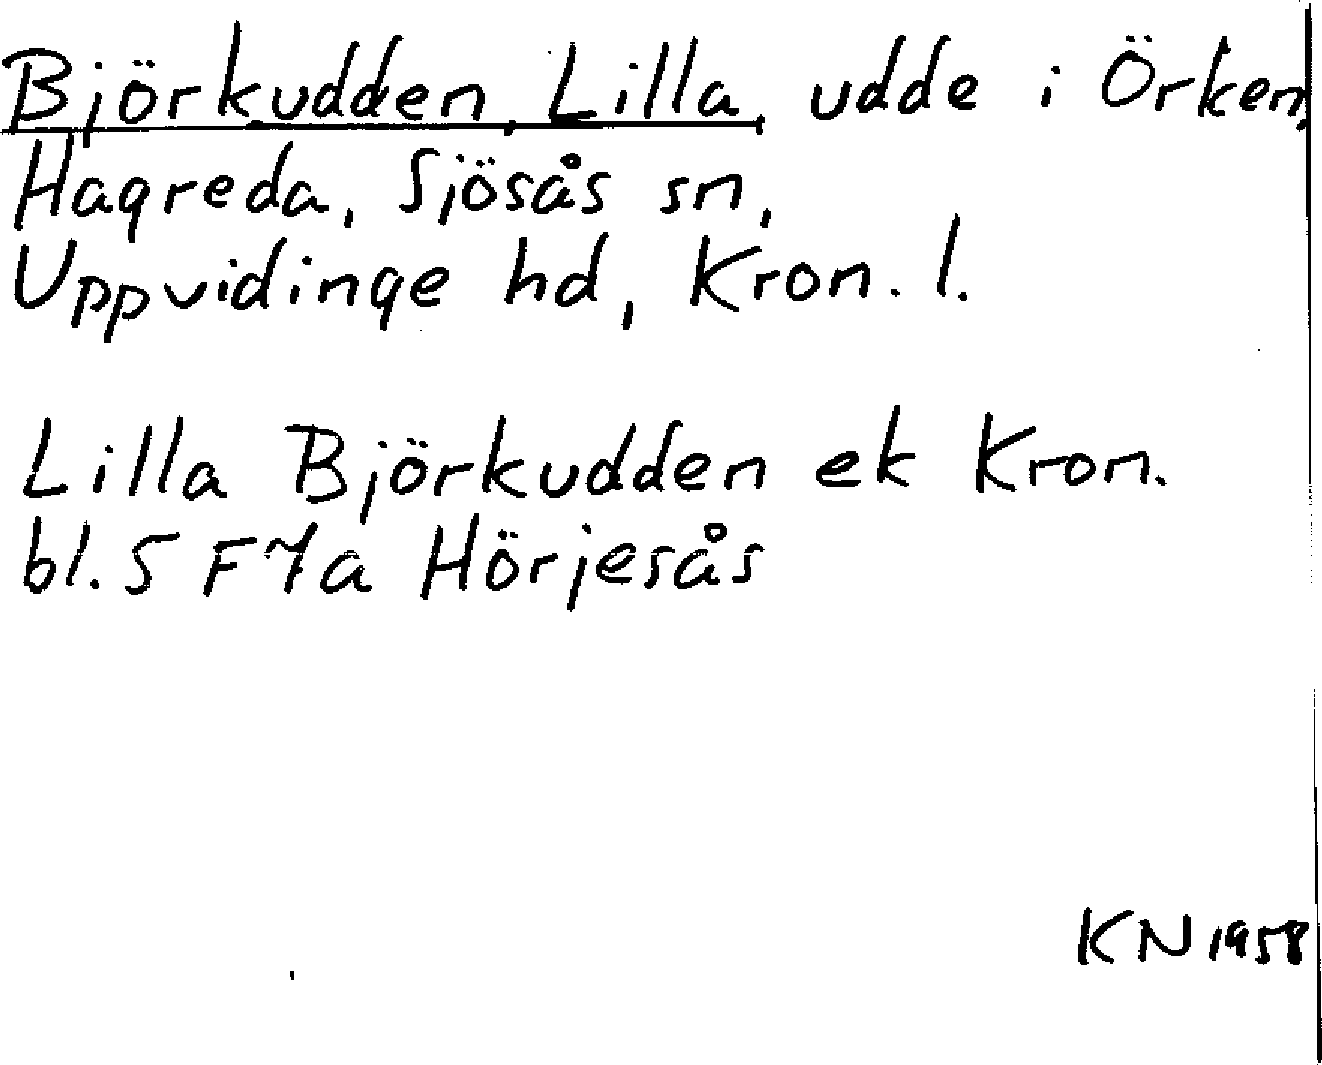 Björkudden, Lilla, udde i Örken,
Hagreda, Sjösås sn,
Uppvidinge hd, Kron. l.
Lilla Björkudden ek Kron.
bl. 5 F7a Hörjesås
KN 1958